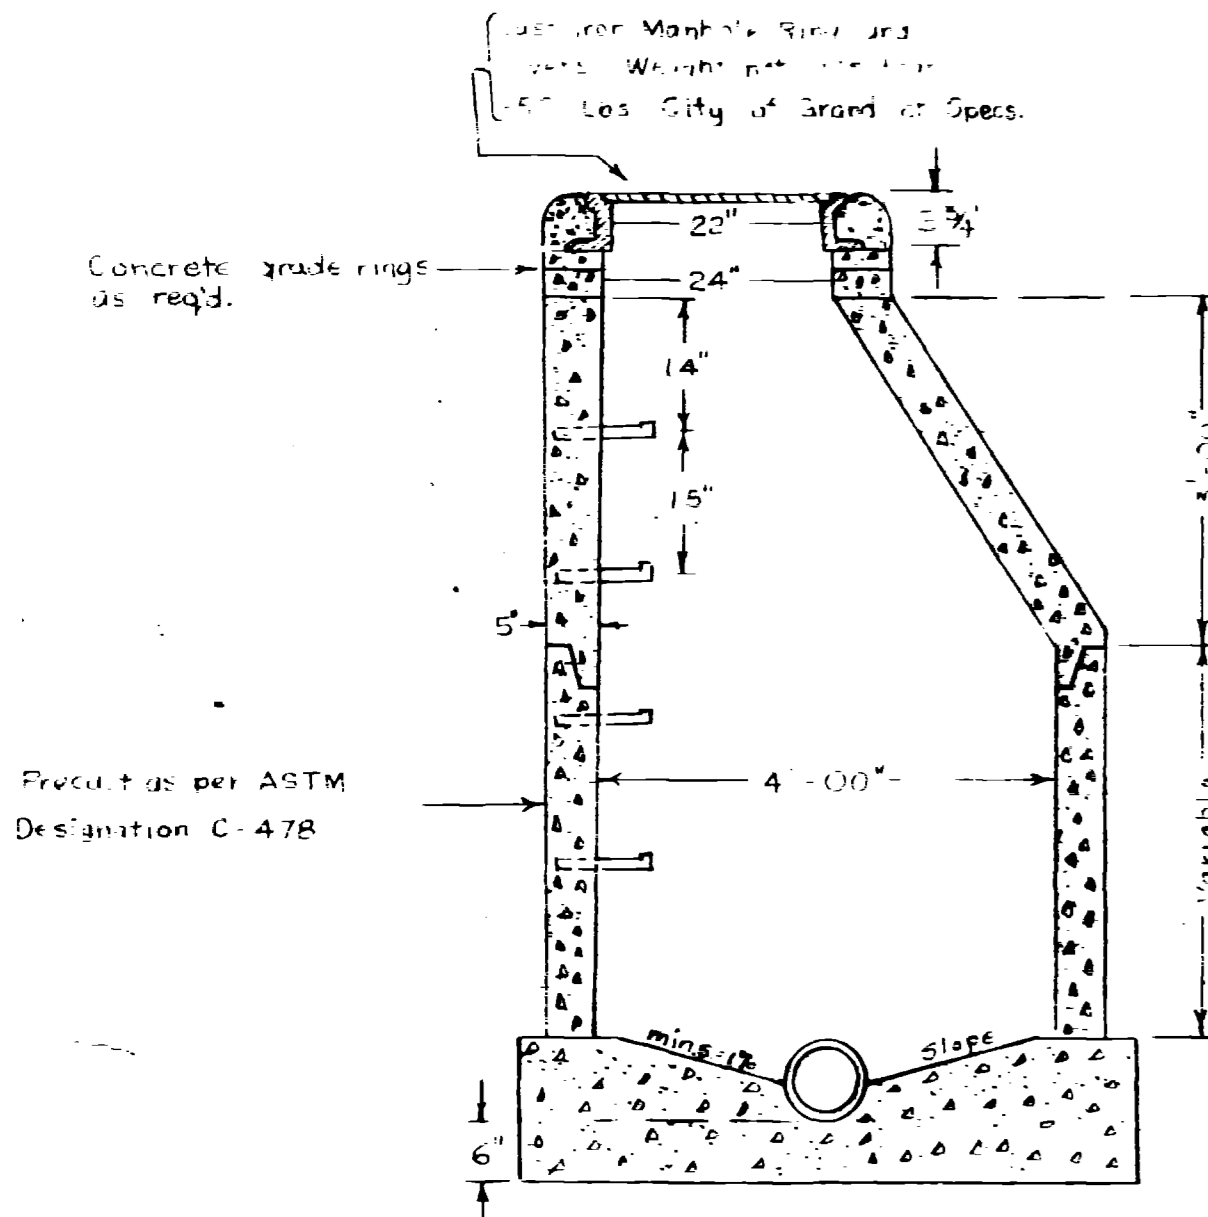 Manhole Ring and
Weight not
Los City of Grand Specs.
22"
3 3/4"
Concrete grade rings
as req'd.
24"
14"
15"
5"
Precast as per ASTM
Designation C-478
4'-00"
Variable
min. slope
6"